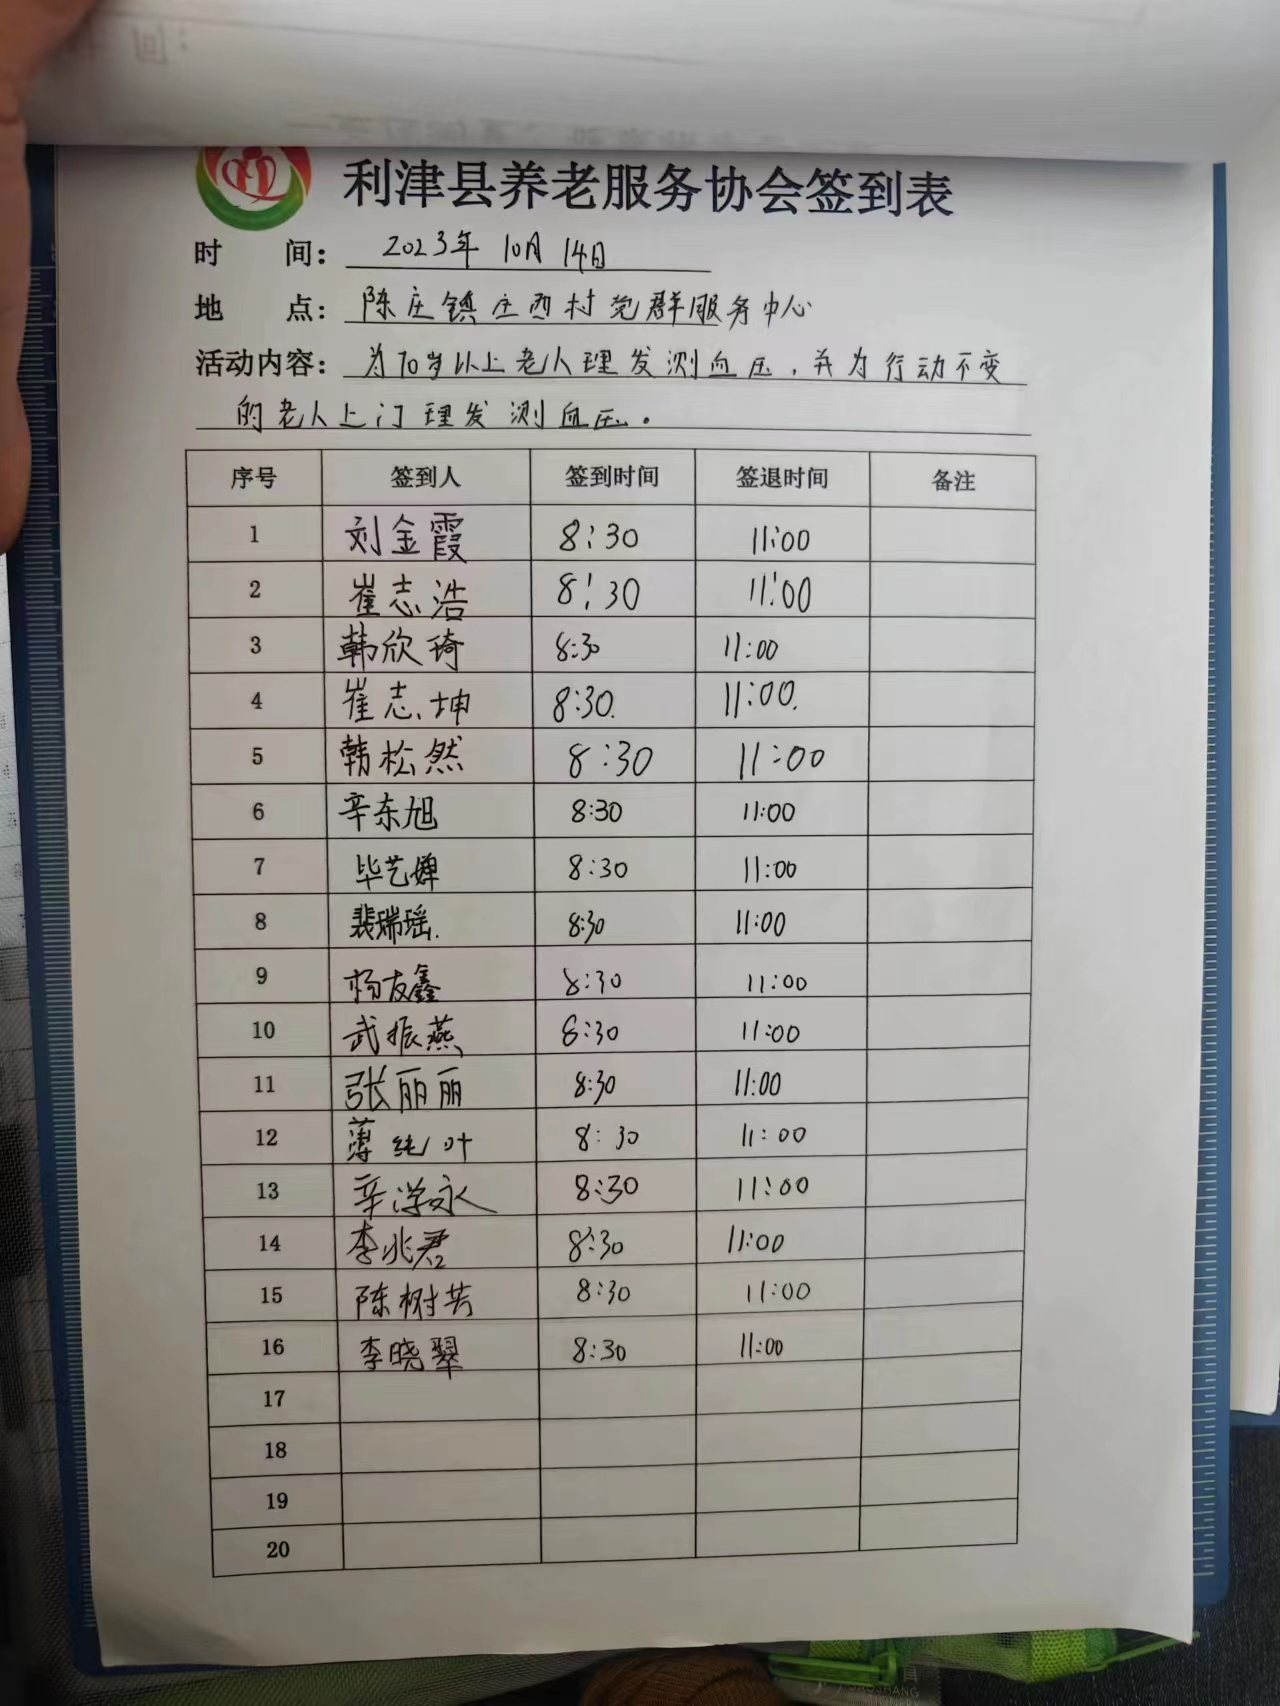 利津县养老服务协会签到表
时 间： 2023年 10月 14日
地 点： 陈庄镇庄西村党群服务中心
活动内容： 为70岁以上老人理发测血压，并为行动不变
的老人上门理发测血压。
序号 签到人 签到时间 签退时间 备注
1 刘金霞 8:30 11:00
2 崔志浩 8:30 11:00
3 韩欣琦 8:30 11:00
4 崔志坤 8:30. 11:00.
5 韩松然 8:30 11:00
6 辛东旭 8:30 11:00
7 毕艺婵 8:30 11:00
8 裴瑞瑶. 8:30 11:00
9 杨友鑫 8:30 11:00
10 武振燕 8:30 11:00
11 张丽丽 8:30 11:00
12 薄纯叶 8:30 11:00
13 辛学永 8:30 11:00
14 李兆君 8:30 11:00
15 陈树芳 8:30 11:00
16 李晓翠 8:30 11:00
17
18
19
20